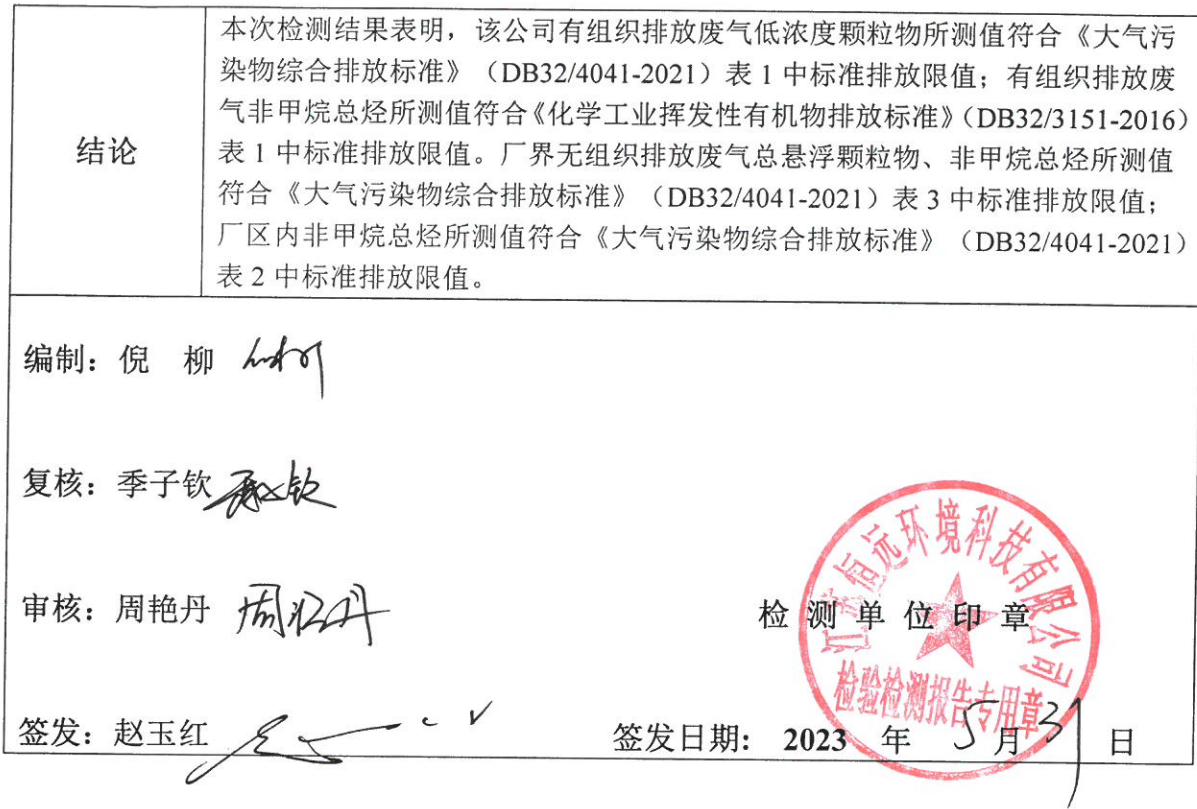 结论
本次检测结果表明，该公司有组织排放废气低浓度颗粒物所测值符合《大气污
染物综合排放标准》（DB32/4041-2021）表 1 中标准排放限值；有组织排放废
气非甲烷总烃所测值符合《化学工业挥发性有机物排放标准》（DB32/3151-2016）
表 1 中标准排放限值。厂界无组织排放废气总悬浮颗粒物、非甲烷总烃所测值
符合《大气污染物综合排放标准》（DB32/4041-2021）表 3 中标准排放限值；
厂区内非甲烷总烃所测值符合《大气污染物综合排放标准》（DB32/4041-2021）
表 2 中标准排放限值。
编制：倪 柳
复核：季子钦
审核：周艳丹 周艳丹
检测单位印章
江苏恒远环境科技有限公司
检验检测报告专用章
签发：赵玉红
签发日期： 2023 年 5 月 31 日